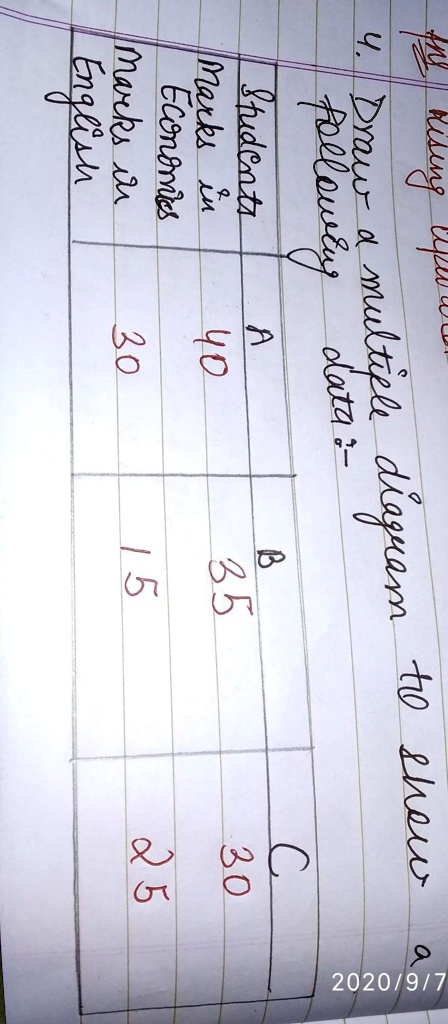 4. Draw a multiple diagram to show a
following data:-
Students A B C
Marks in Economics 40 35 30
Marks in English 30 15 25
2020/9/7